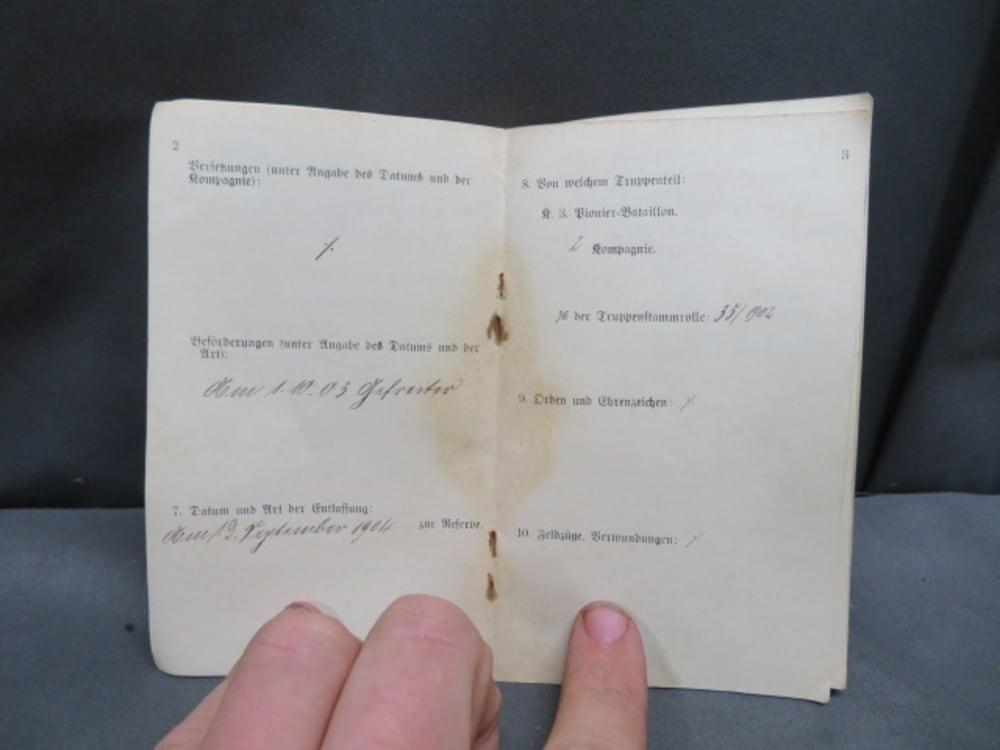 2
Versetzungen (unter Angabe des Datums und der
Kompagnie):
⁒
Beförderungen (unter Angabe des Datums und der
Art):
Am 1. 10. 03 Gefreiter
7. Datum und Art der Entlassung:
Am 19. September 1904 zur Reserve.
3
8. Von welchem Truppenteil:
K. 3. Pionier-Bataillon.
2 Kompagnie.
№ der Truppenstammrolle: 35/902
9. Orden und Ehrenzeichen: ⁒
10. Feldzüge, Verwundungen: ⁒